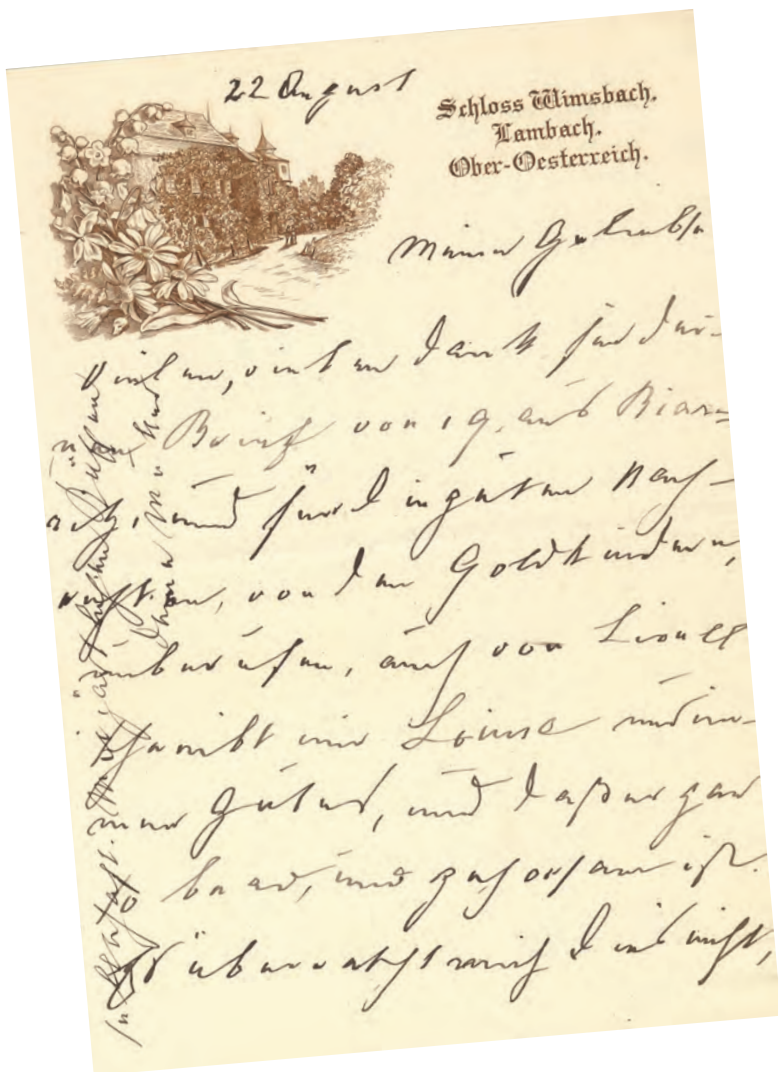 22 August
Schloss Wimsbach.
Lambach.
Ober-Oesterreich.
Meine Geliebte
Vielen, vielen Dank für dei-
nen Brief von 19. aus Biar-
ritz, und für die guten Nach-
richten, von den Goldkindern,
unberufen, auch von Lionel
schreibt mir Louise nur im-
mer Gutes, und daß er gar
so brav, und gehorsam ist.
Es überrascht mich dies nicht,